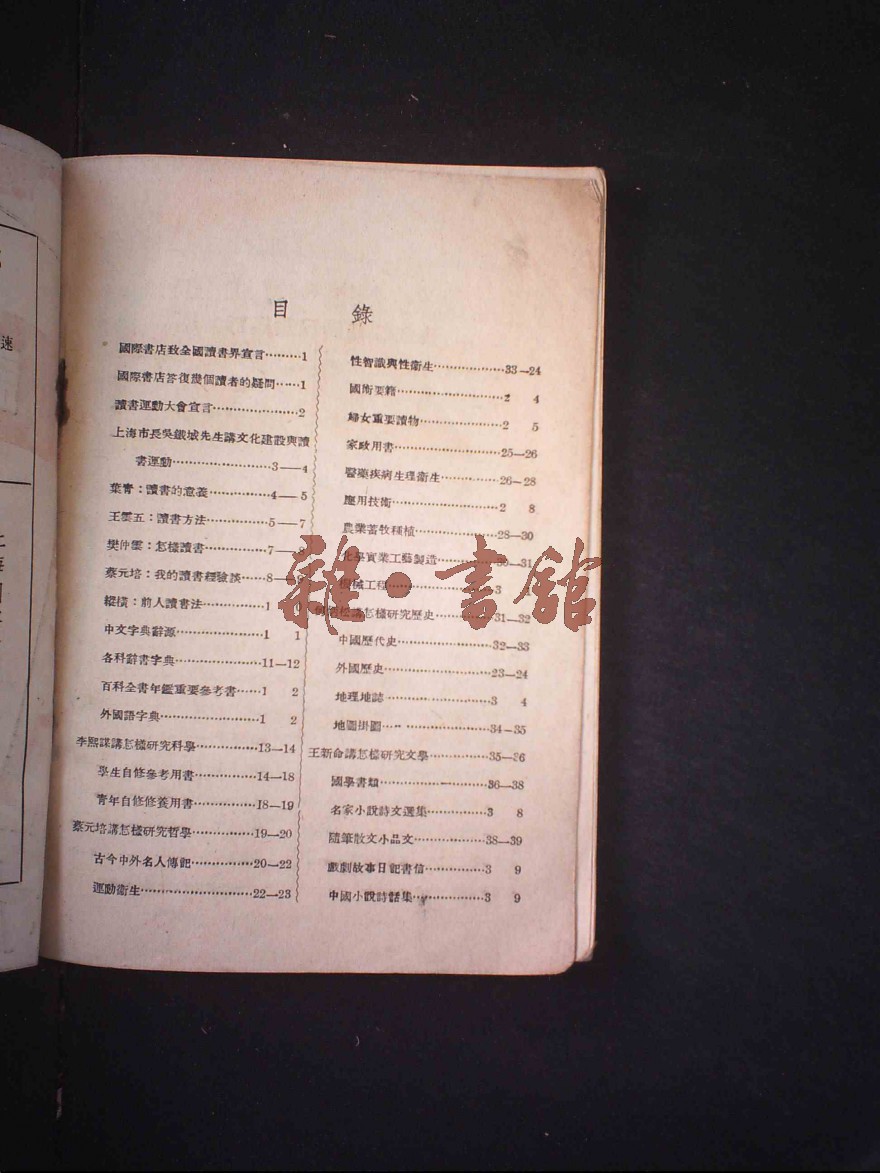 目 錄
國際書店致全國讀書界宣言………1
國際書店答復幾個讀者的疑問……1
讀書運動大會宣言………………2
上海市長吳鐵城先生講文化建設與讀
書運動…………………3—4
葉青：讀書的意義…………4—5
王雲五：讀書方法…………5—7
樊仲雲：怎樣讀書…………7—8
蔡元培：我的讀書經驗談……8—
縱橫：前人讀書法…………1 0
中文字典辭源………………1 1
各科辭書字典………………11—12
百科全書年鑑重要參考書……1 2
外國語字典…………………1 2
李熙謀講怎樣研究科學…………13—14
學生自修參考用書…………14—18
青年自修修養用書…………18—19
蔡元培講怎樣研究哲學…………19—20
古今中外名人傳記…………20—22
運動衞生……………………22—23
性智識與性衞生……………33—24
國術要籍……………………2 4
婦女重要讀物………………2 5
家政用書……………………25—26
醫藥疾病生理衞生…………26—28
應用技術……………………2 8
農業畜牧種植………………28—30
化學實業工藝製造…………30—31
機械工程……………………3 1
何炳松講怎樣研究歷史…………31—32
中國歷代史…………………32—33
外國歷史……………………23—24
地理地誌……………………3 4
地圖掛圖……………………34—35
王新命講怎樣研究文學…………35—36
國學書類……………………36—38
名家小說詩文選集…………3 8
隨筆散文小品文……………38—39
戲劇故事日記書信…………3 9
中國小說詩話集……………3 9
雜·書館
速